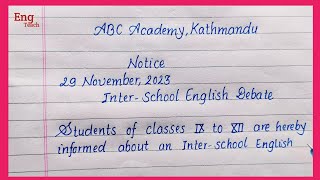 Eng
Teach
ABC Academy, Kathmandu
Notice
29 November, 2023
Inter-School English Debate
Students of classes IX to XII are hereby
informed about an Inter-school English